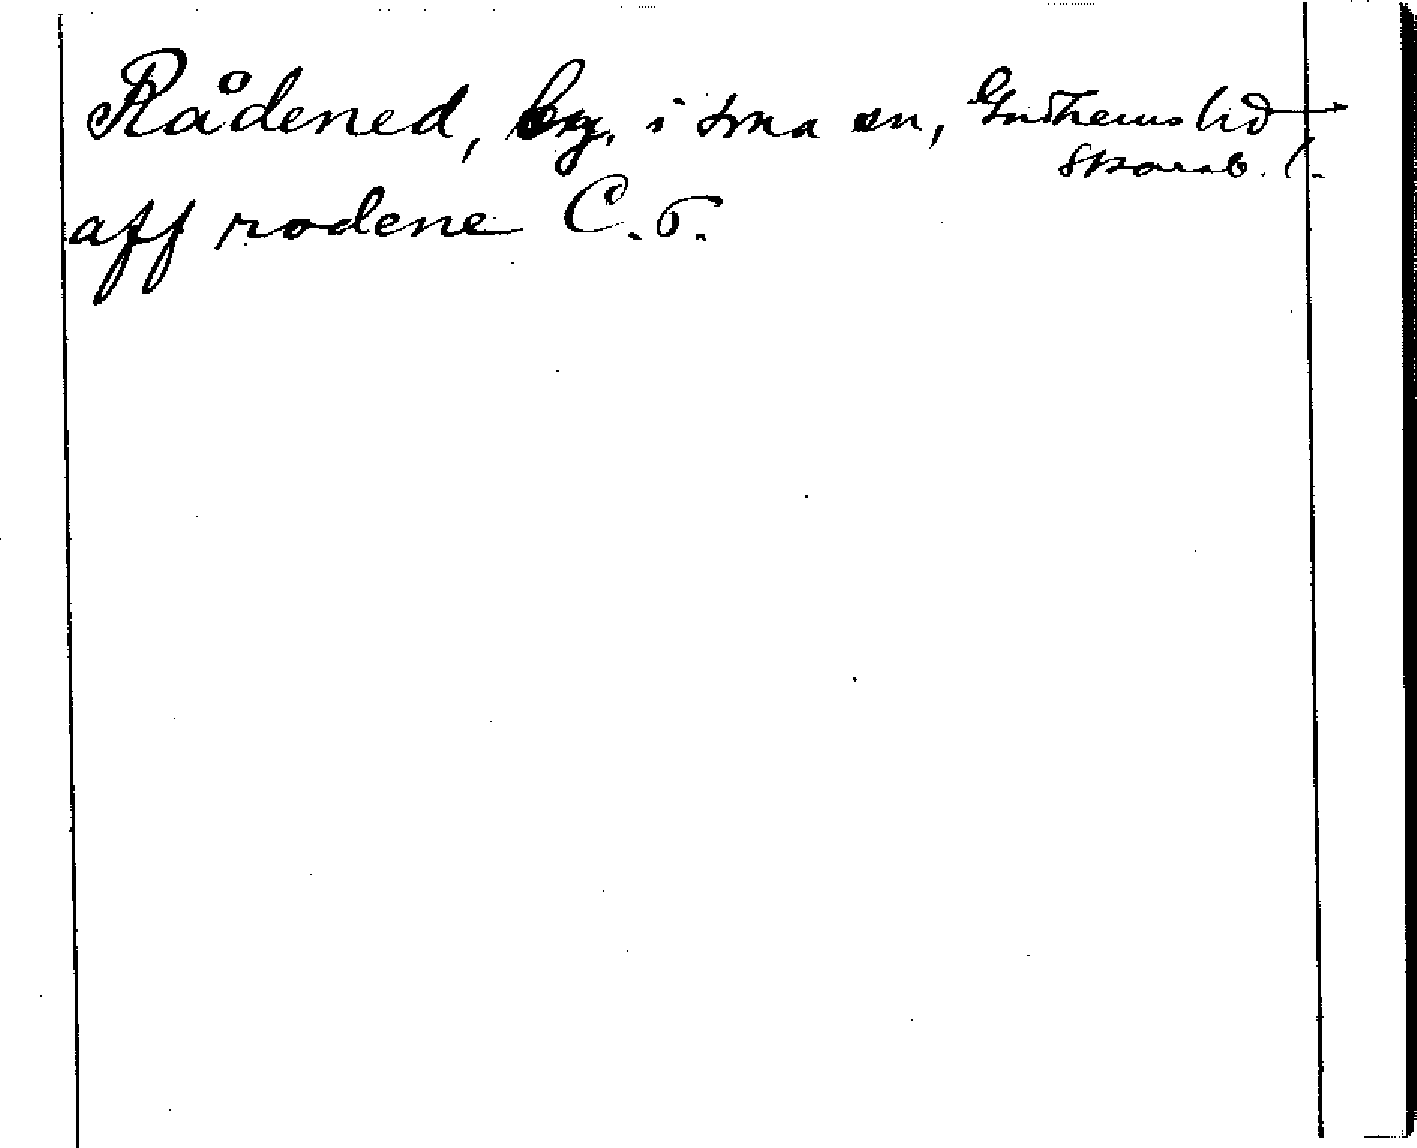 Rådened, by, i sma sn, Gudhems hd
Skarab. l.
aff rodene C. 5.